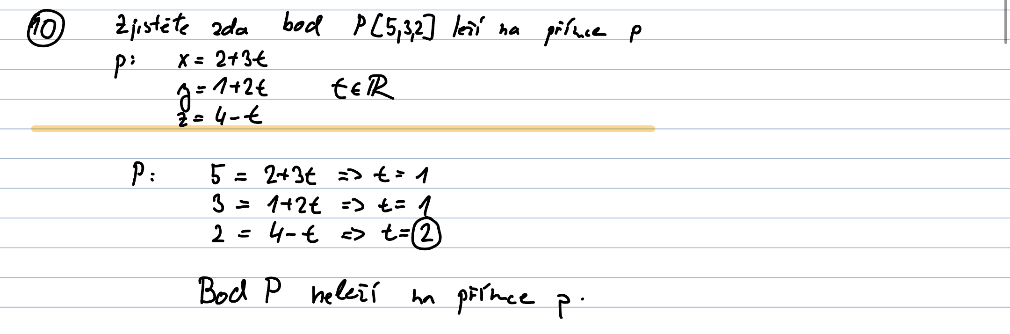 10 Zjistěte zda bod P[5,3,2] leží na přímce p
p: x = 2+3t
y = 1+2t t∈ℝ
z = 4-t
P: 5 = 2+3t => t = 1
3 = 1+2t => t = 1
2 = 4-t => t = 2
Bod P neleží na přímce p.